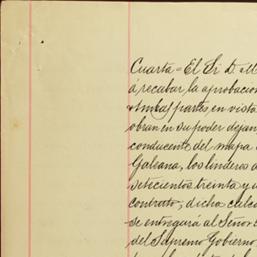 Cuarta = El Sr. D. M
á recabar la aprobacion
Ambas partes, en vista
obran en su poder dejan
conducente del mapa
Galeana, los linderos d
setecientos treinta y u
contrato; dicha
se entregará al Señor
del Supremo Gobierno